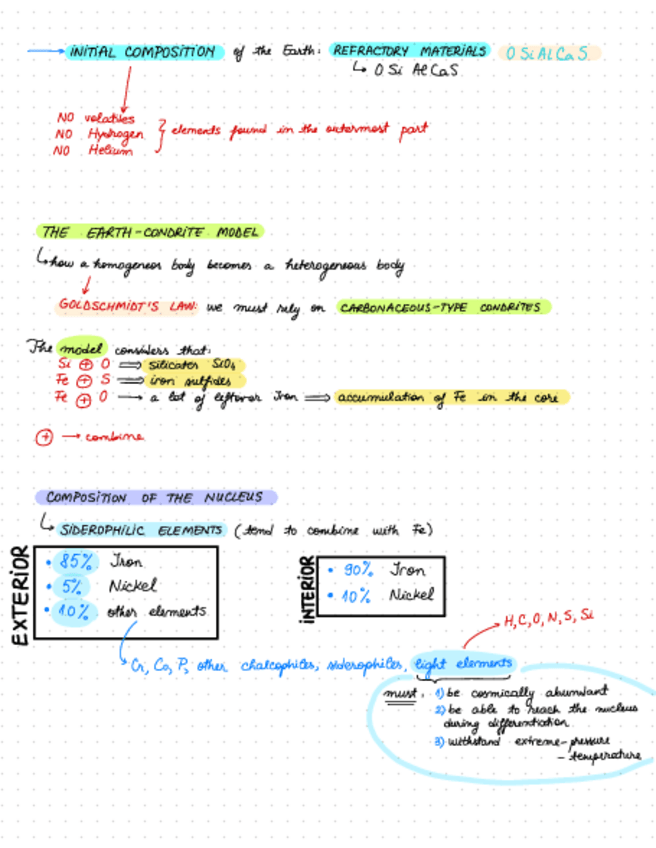 → INITIAL COMPOSITION of the Earth: REFRACTORY MATERIALS O Si Al Ca S
↳ O Si Al Ca S
NO volatiles
NO Hydrogen } elements found in the outermost part
NO Helium
THE EARTH-CONDRITE MODEL
↳ how a homogeneos body becomes a heterogeneous body
GOLDSCHMIDT'S LAW: we must rely on CARBONACEOUS-TYPE CONDRITES
The model considers that:
Si ⊕ O ⟹ silicates SiO₄
Fe ⊕ S ⟹ iron sulfides
Fe ⊕ O → a lot of leftover Iron ⟹ accumulation of Fe in the core
⊕ → combine
COMPOSITION OF THE NUCLEUS
↳ SIDEROPHILIC ELEMENTS (tend to combine with Fe)
EXTERIOR
• 85% Iron
• 5% Nickel
• 10% other elements
INTERIOR
• 90% Iron
• 10% Nickel
H, C, O, N, S, Si
Cr, Co, P, other chalcophiles, siderophiles, light elements
must: 1) be cosmically abundant
2) be able to reach the nucleus
during differentiation
3) withstand extreme - pressure
- temperature